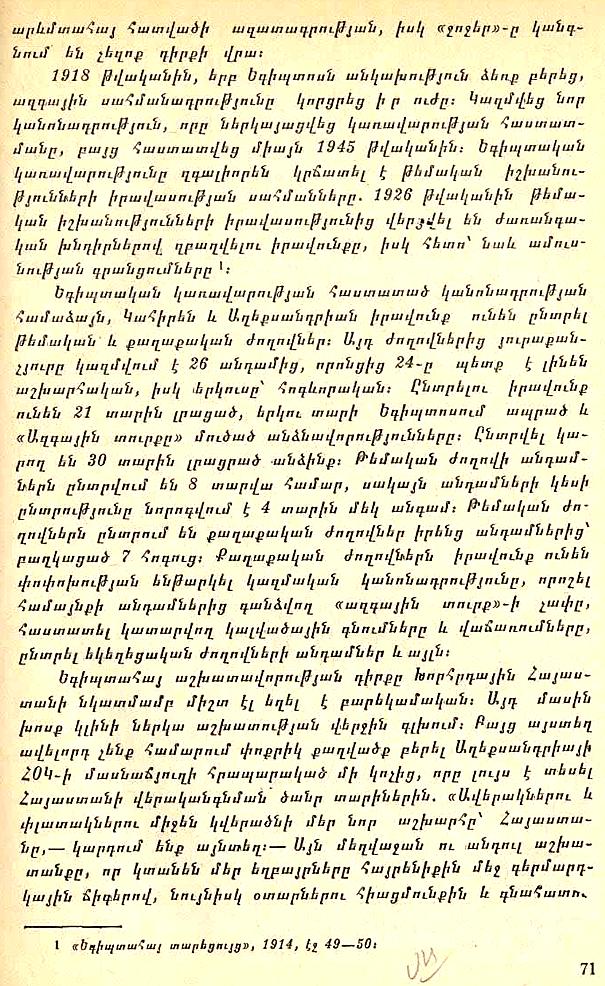 արևմտահայ հատվածի ազատագրության, իսկ «ջոջեր»-ը կանգ-
նում են չեզոք դիրքի վրա։
1918 թվականին, երբ Եգիպտոսն անկախություն ձեռք բերեց,
ազգային սահմանադրությունը կորցրեց իր ուժը։ Կազմվեց նոր
կանոնադրություն, որը ներկայացվեց կառավարության հաստատ-
մանը, բայց հաստատվեց միայն 1945 թվականին։ Եգիպտական
կառավարությունը զգալիորեն կրճատել է թեմական իշխանու-
թյունների իրավասության սահմանները. 1926 թվականին թեմա-
կան իշխանությունների իրավասությունից վերցվել են ժառանգա-
կան խնդիրներով զբաղվելու իրավունքը, իսկ հետո՝ նաև ամուս-
նության գրանցումները ¹։
Եգիպտական կառավարության հաստատած կանոնադրության
համաձայն, Կահիրեն և Աղեքսանդրիան իրավունք ունեն ընտրել
թեմական և քաղաքական ժողովներ։ Այդ ժողովներից յուրաքան-
չյուրը կազմվում է 26 անդամից, որոնցից 24-ը պետք է լինեն
աշխարհական, իսկ երկուսը՝ հոգևորական։ Ընտրելու իրավունք
ունեն 21 տարին լրացած, երկու տարի Եգիպտոսում ապրած և
«Ազգային տուրքը» մուծած անձնավորությունները։ Ընտրվել կա-
րող են 30 տարին լրացրած անձինք։ Թեմական ժողովի անդամ-
ներն ընտրվում են 8 տարվա համար, սակայն անդամների կեսի
ընտրությունը նորոգվում է 4 տարին մեկ անգամ։ Թեմական ժո-
ղովներն ընտրում են քաղաքական ժողովներ իրենց անդամներից՝
բաղկացած 7 հոգուց։ Քաղաքական ժողովներն իրավունք ունեն
փոփոխության ենթարկել կազմական կանոնադրությունը, որոշել
համայնքի անդամներից գանձվող «ազգային տուրք»-ի չափը,
հաստատել կատարվող կալվածային գնումները և վաճառումները,
ընտրել եկեղեցական ժողովների անդամներ և այլն։
Եգիպտահայ աշխատավորության դիրքը Խորհրդային Հայաս-
տանի նկատմամբ միշտ էլ եղել է բարեկամական։ Այդ մասին
խոսք կլինի ներկա աշխատության վերջին գլխում։ Բայց այստեղ
ավելորդ չենք համարում փոքրիկ քաղվածք բերել Աղեքսանդրիայի
ՀՕԿ-ի մասնաճյուղի հրապարակած մի կոչից, որը լույս է տեսել
Հայաստանի վերականգնման ծանր տարիներին. «Ավերակներու և
փլատակներու միջեն կվերածնի մեր նոր աշխարհը՝ Հայաստա-
նը,— կարդում ենք այնտեղ։— Այն մեղվաջան ու անդուլ աշխա-
տանքը, որ կտանեն մեր եղբայրները հայրենիքին մեջ գերմարդ-
կային ճիգերով, նույնիսկ օտարներու հիացմունքին և գնահատու-
1 «Եգիպտահայ տարեցույց», 1914, էջ 49—50։
71